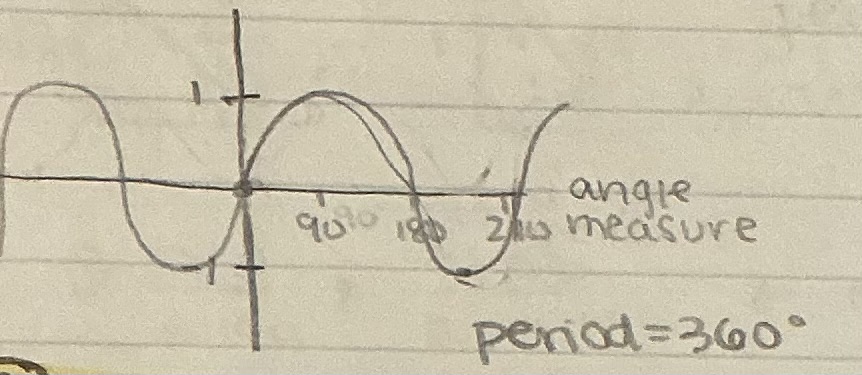 1
angle
90 180 measure
1
period=360°